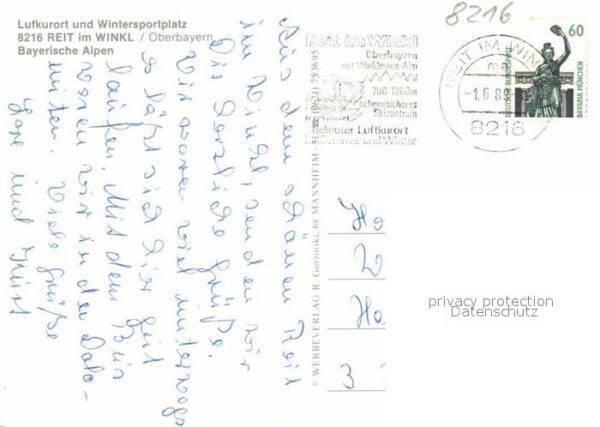 Luftkurort und Wintersportplatz
8216 REIT im WINKL / Oberbayern
Bayerische Alpen
8216
Reit im Winkl
Oberbayern
mit Winklmoos-Alm
700-1800m
schneesicheres
Skizentrum
beliebter Luftkurort
im Sommer und Winter
REIT IM WINKL
-1.6.8
8216
60
DEUTSCHE BUNDESPOST
BAVARIA MÜNCHEN
Aus dem schönen Reit
im Winkl, senden wir
Die herzliche Grüße.
Wir waren viel unterwegs
es läßt sich hier gut
laufen. Mit dem Bus
waren wir in den Dolo-
miten. Viele Grüße
und
© WERBEVERLAG R. Gurzinski, 68 MANNHEIM - 31
Ho
W
Ha
3
privacy protection
Datenschutz